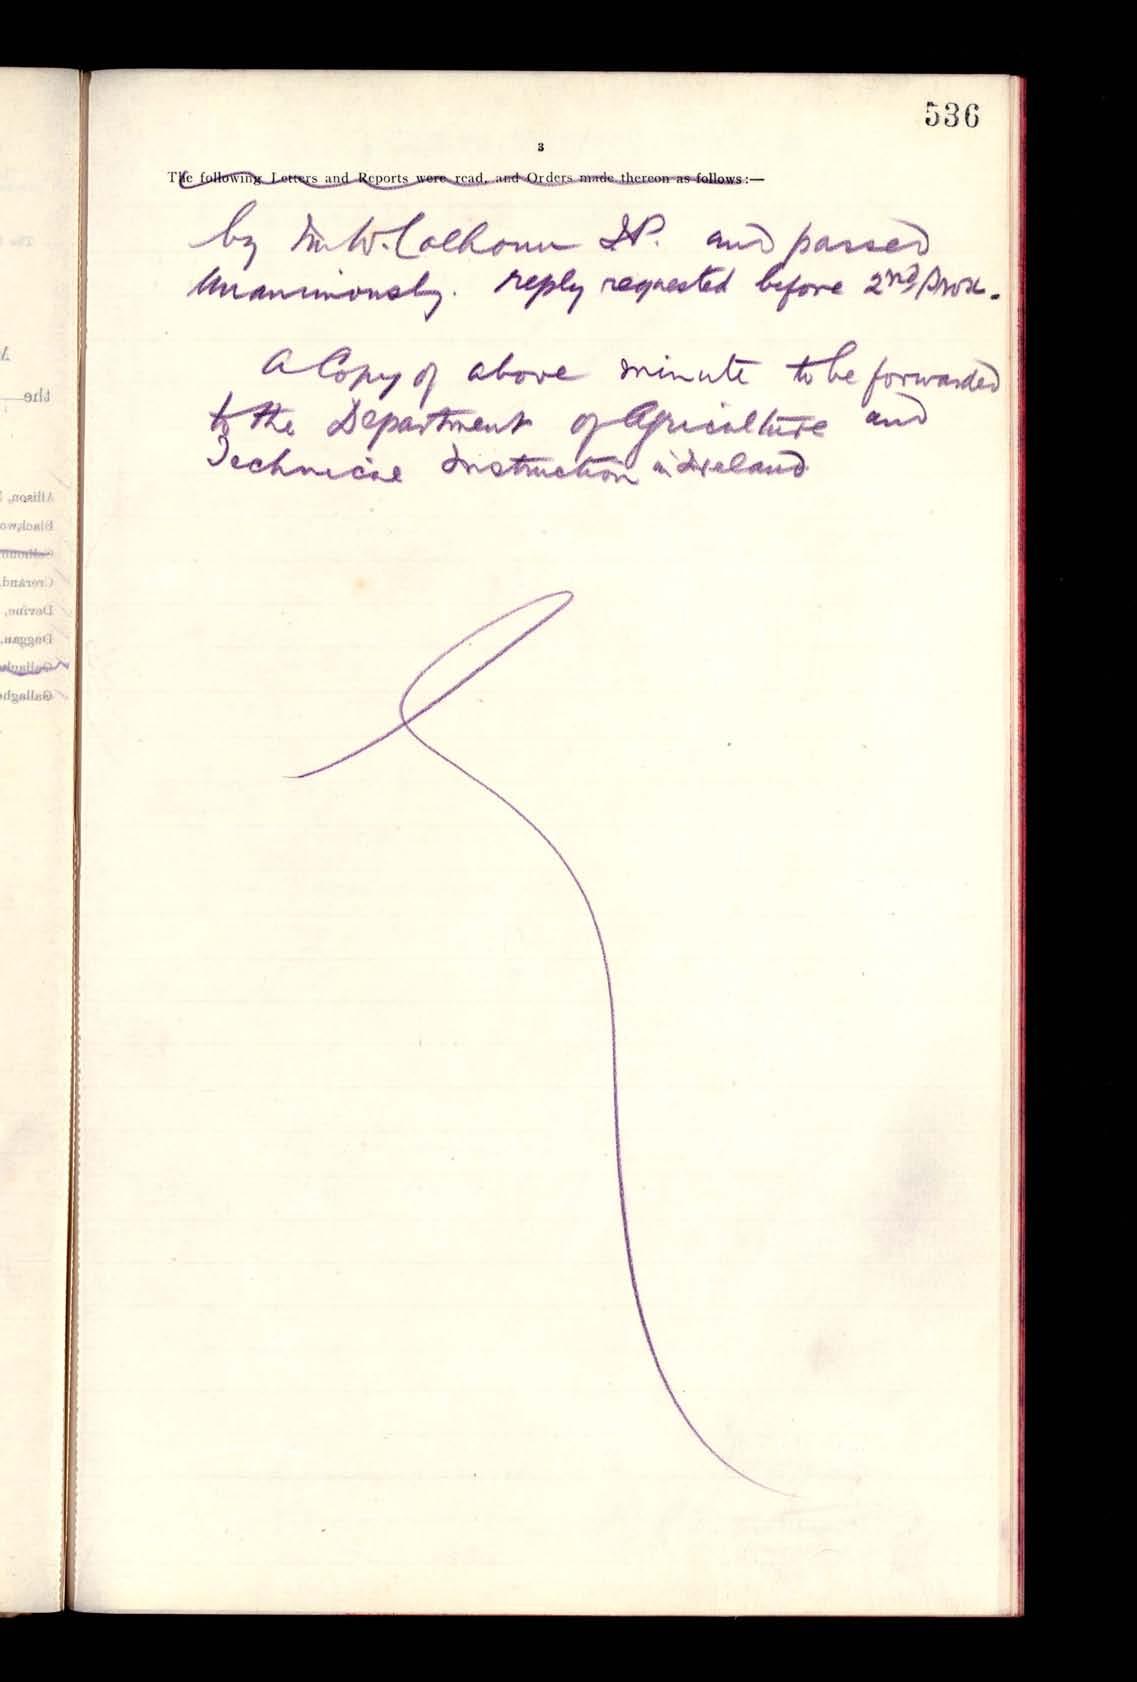 536
3
The following Letters and Reports were read, and Orders made thereon as follows:—
by Mr W. Colhoun J.P. and passed
unanimously. reply requested before 2nd Prox.
A Copy of above minute to be forwarded
to the Department of Agriculture and
Technical Instruction in Ireland
the
Allison,
Crerand,
Devine,
Duggan,